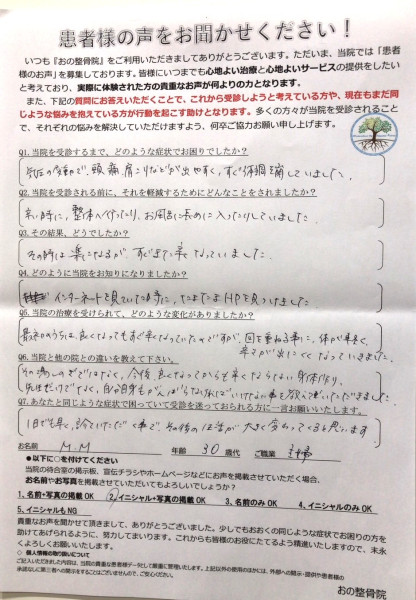 患者様の声をお聞かせください！
いつも『おの整骨院』をご利用いただきましてありがとうございます。ただいま、当院では「患者
様のお声」を募集しております。皆様にいつまでも心地よい治療と心地よいサービスの提供をしたい
と考えており、実際に体験された方の貴重なお声が何よりの力となります。
また、下記の質問にお答えいただくことで、これから受診しようと考えている方や、現在もまだ同
じような悩みを抱えている方が行動を起こす助けとなります。多くの方々が当院を受診されること
で、それぞれの悩みを解決していただけますよう、何卒ご協力お願い申し上げます。
Q1.当院を受診するまで、どのような症状でお困りでしたか？
気圧の変動で、頭痛、肩こりなどが出やすく、すぐ体調を崩していました。
Q2.当院を受診される前に、それを軽減するためにどんなことをされましたか？
辛い時に、整体へ行ったり、お風呂に長めに入ったりしていました。
Q3.その結果、どうでしたか？
その時は楽になるが、すぐまた辛くなっていました。
Q4.どのように当院をお知りになりましたか？
インターネットを見ていた時に、たまたまHPを見つけました
Q5.当院の治療を受けられて、どのような変化がありましたか？
最初のうちは、良くなってもすぐ辛くなっていたのですが、回を重ねる毎に、体が軽く、
辛さが出にくくなっていきました。
Q6.当院と他の院との違いを教えて下さい。
その場しのぎではなく、今後、良くなってからも辛くならない身体作り、
先生だけでなく、自分自身もがんばらなければいけない事を教えていただきました。
Q7.あなたと同じような症状で困っていて受診を迷っておられる方に一言お願いいたします。
1日でも早く、診ていただく事で、その後の生活が大きく変わってくると思います。
お名前 M.M 年齢 30歳代 ご職業 主婦
●以下に○を付けてください
当院の待合室の掲示板、宣伝チラシやホームページなどにお声を掲載させていただく場合、
お名前やお写真を掲載させていただいてもよろしいでしょうか？
1、名前+写真の掲載OK 2、イニシャル+写真の掲載OK 3、名前のみOK 4、イニシャルのみOK
5、イニシャルもNG
貴重なお声を聞かせて頂きまして、ありがとうございました。少しでもおおくの同じような症状でお困りの方を
助けてあげられるように、努力してまいります。これからも皆様のお役にたてるよう精進いたしますので、末永
くよろしくお願いいたします。
◇ 個人情報の取り扱いについて
ご記入いただきました内容は、当院の貴重な患者様データとして厳重に管理いたします。上記以外の使用のほかには、外部への開示・提供や患者様の
承諾なしに第三者への開示をすることはございませんので、ご安心ください。
おの整骨院